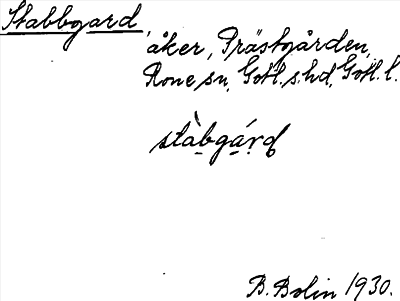 Stabbgard,
åker, Prästgården,
Rone sn, Gotl. s. hd, Gotl. l.
stàbgárd
B. Bolin 1930.